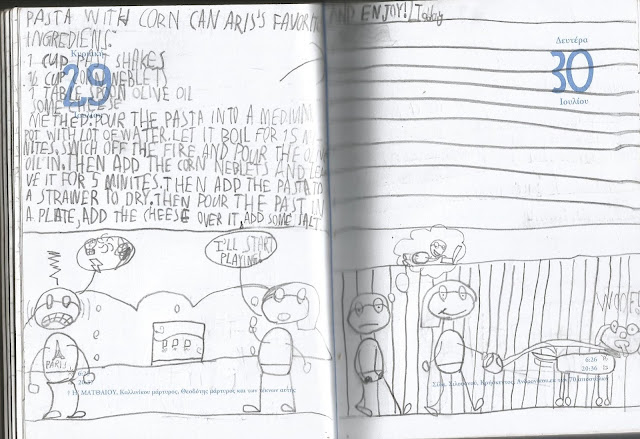 PASTA WITH CORN CAN ARIS'S FAVORIT
INGREDIENS:
1 CUP SHAKES
½ CUP CORN NEBLETS
1 TABLE SPOON OLIVE OIL
SOME CHEESE
METHED: POUR THE PASTA INTO A MEDIUM
POT WITH LOT OF WATER. LET IT BOIL FOR 15 MI
NITES. SWICH OFF THE FIRE AND POUR THE OLIVE
OIL IN. THEN ADD THE CORN NEBLETS AND LEA
VE IT FOR 5 MINITES. THEN ADD THE PASTA TO
A STRAINER TO DRY. THEN POUR THE PAST IN
A PLATE, ADD THE CHEESE OVER IT, ADD SOME SALT
Κυριακή
29
I'LL START
PLAYING
PARIS
ΜΑΤΘΑΙΟΥ, Καλλινίκου μάρτυρος, Θεοδότης μάρτυρος και των τέκνων αυτής
AND ENJOY! Today
Δευτέρα
30
Ιουλίου
WOOF!
6:26
20:36
Σίλα, Σιλουανού,